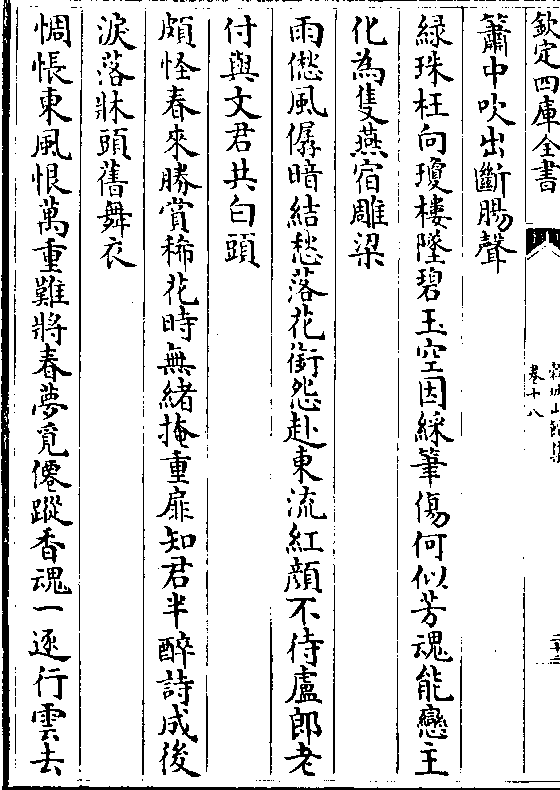 欽定四庫全書
卷十八
簫中吹出斷腸聲
緑珠枉向瓊樓墜碧玉空因綵筆傷何似芳魂能戀主
化為隻燕宿雕梁
雨僽風僝暗結愁落花銜怨赴東流紅顔不待盧郎老
付與文君共白頭
頗怪春來勝賞稀花時無緒掩重扉知君半醉詩成後
淚落牀頭舊舞衣
惆悵東風恨萬重難將春夢覓僊蹤香魂一逐行雲去